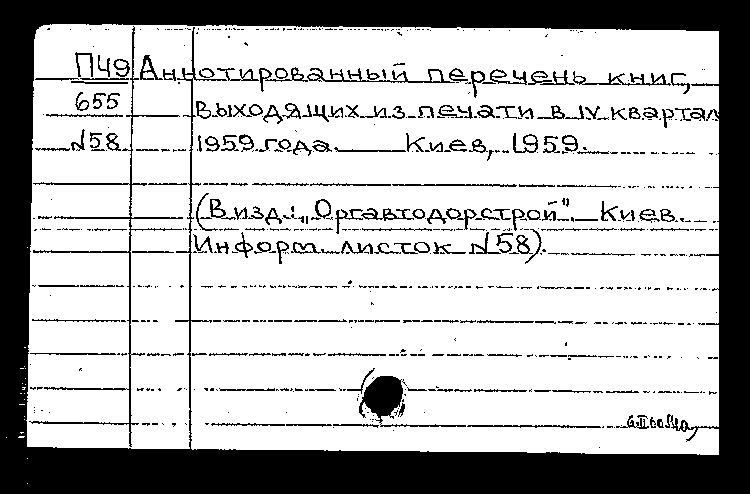 П49 Аннотированный перечень книг,
655 выходящих из печати в IV квартал
№58 1959 года. Киев, 1959.
(В изд.: „Оргавтодорстрой". Киев.
Информ. листок №58).